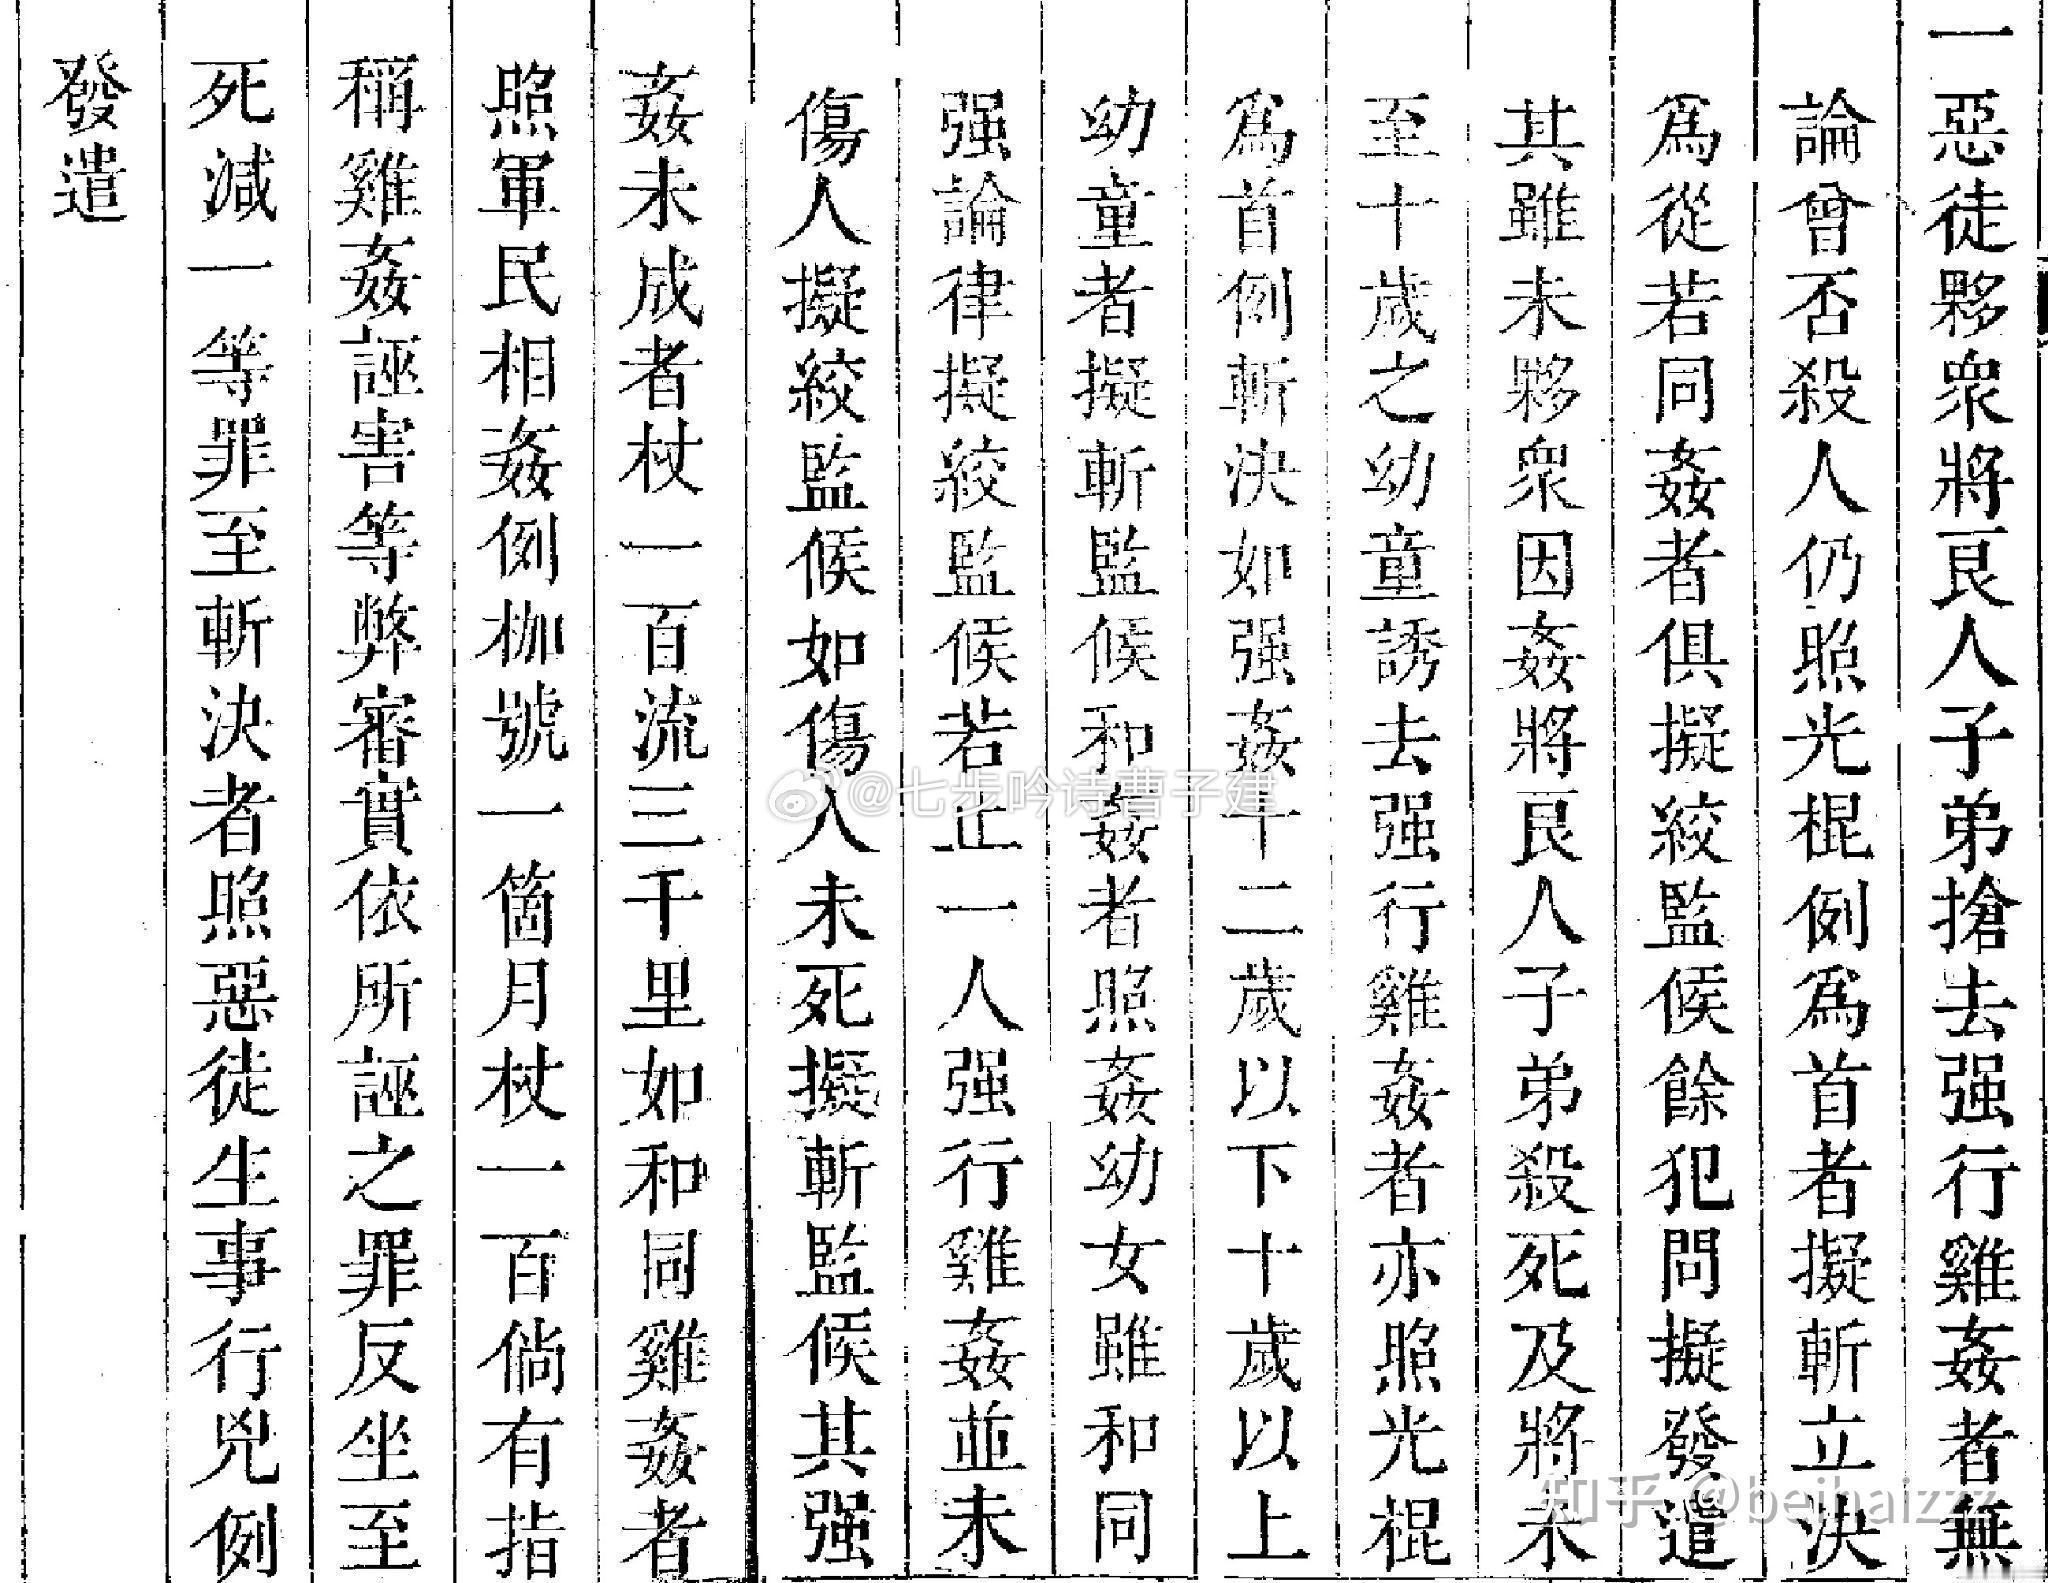 一惡徒夥衆將良人子弟搶去强行雞姦者無
論曾否殺人仍照光棍例爲首者擬斬立決
爲從若同姦者俱擬絞監候餘犯問擬發遣
其雖未夥衆因姦將良人子弟殺死及將未
至十歲之幼童誘去强行雞姦者亦照光棍
爲首例斬決如强姦十二歲以下十歲以上
幼童者擬斬監候和姦者照姦幼女雖和同
强論律擬絞監候若止一人强行雞姦並未
傷人擬絞監候如傷人未死擬斬監候其强
姦未成者杖一百流三千里如和同雞姦者
照軍民相姦例枷號一箇月杖一百倘有指
稱雞姦誣害等弊審實依所誣之罪反坐至
死減一等罪至斬決者照惡徒生事行兇例
發遣
@七步吟诗曹子建
知乎 @beihaizzz